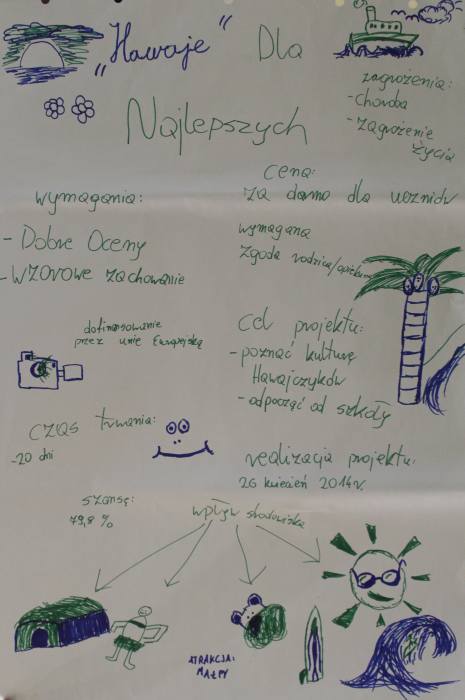 „Hawaje" Dla
Najlepszych
zagrożenia:
- choroba
- zagrożenie
życia
wymagania:
- Dobre Oceny
- wzorowe zachowanie
cena:
za darmo dla uczniów
wymagana
zgoda rodzica/opiekuna
dofinansowanie
przez unie Europejską
cel projektu:
- poznać kulturę
Hawajczyków
- odpocząć od szkoły
czas trwania:
- 20 dni
realizacja projektu:
26 kwiecień 2014r.
szansę:
79,8 %
wpływ środowiska
ATRAKCJA:
MAŁPY